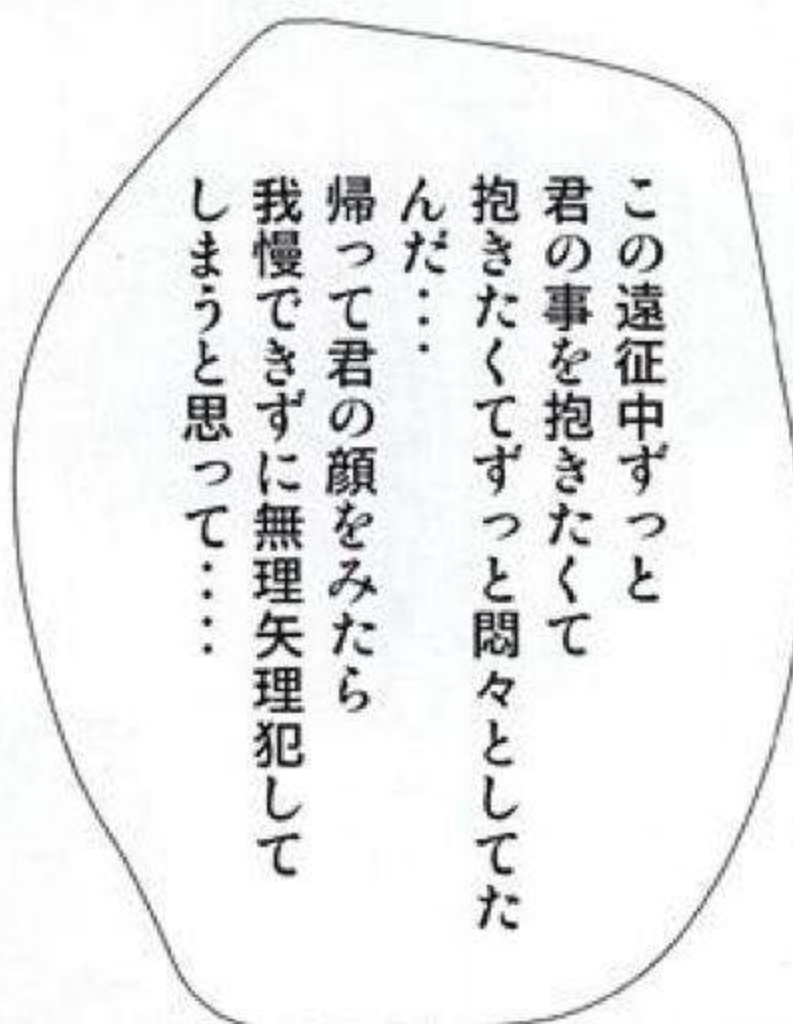 この遠征中ずっと
君の事を抱きたくて
抱きたくてずっと悶々としてた
んだ・・・
帰って君の顔をみたら
我慢できずに無理矢理犯して
しまうと思って・・・・